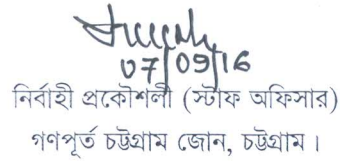 07/09/16
নির্বাহী প্রকৌশলী (স্টাফ অফিসার)
গণপূর্ত চট্টগ্রাম জোন, চট্টগ্রাম।